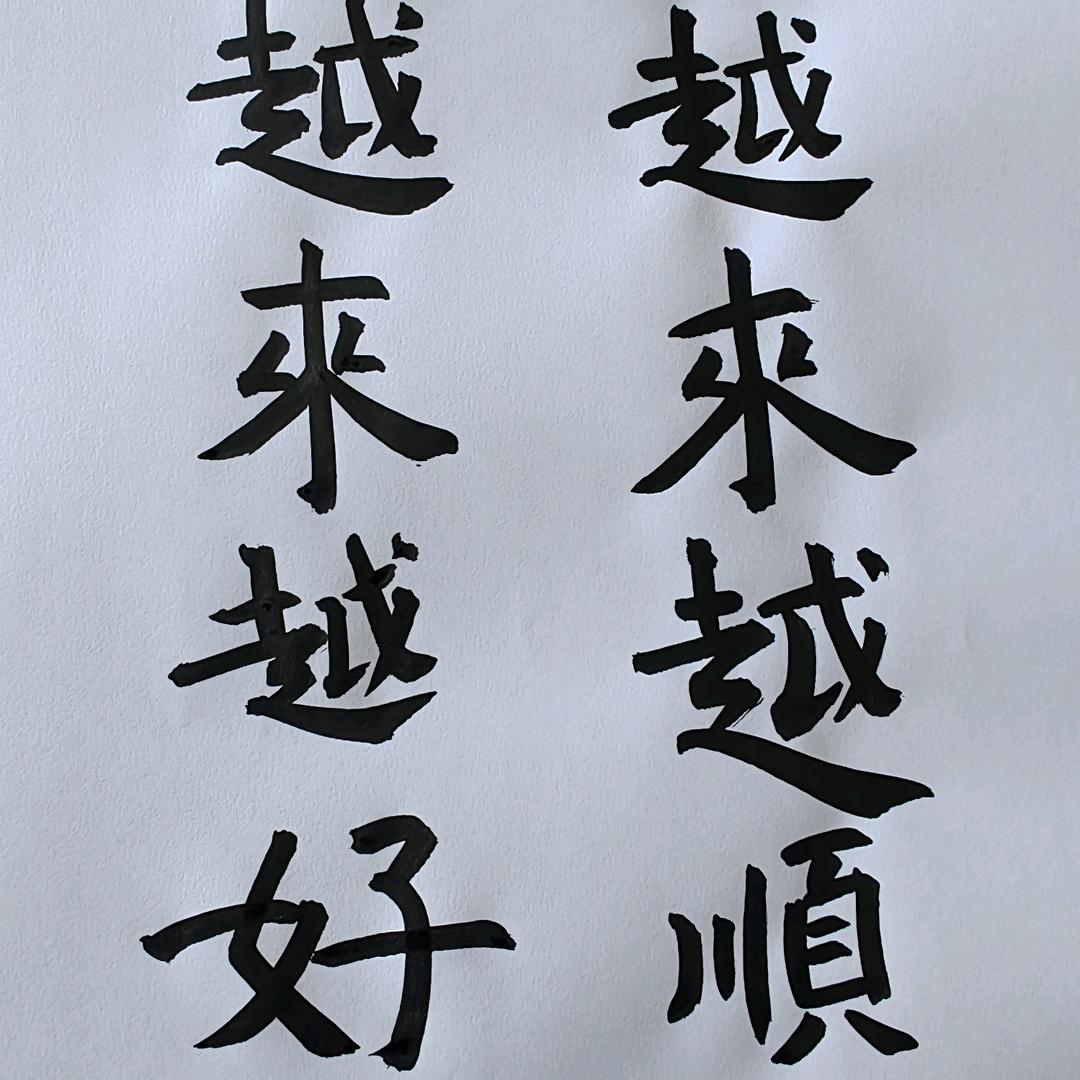 越來越順
越來越好